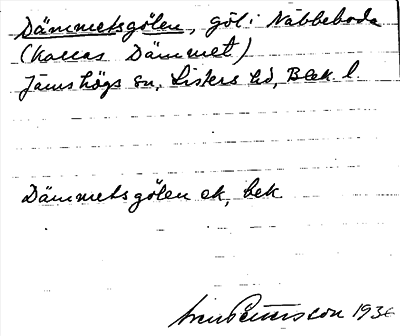 Dämmetsgölen, göl i Näbbeboda
(Kallas Dämmet)
Jämshögs sn, Listers hd, Blek l.
Dämmetsgölen ek, bek
Pettersson 193